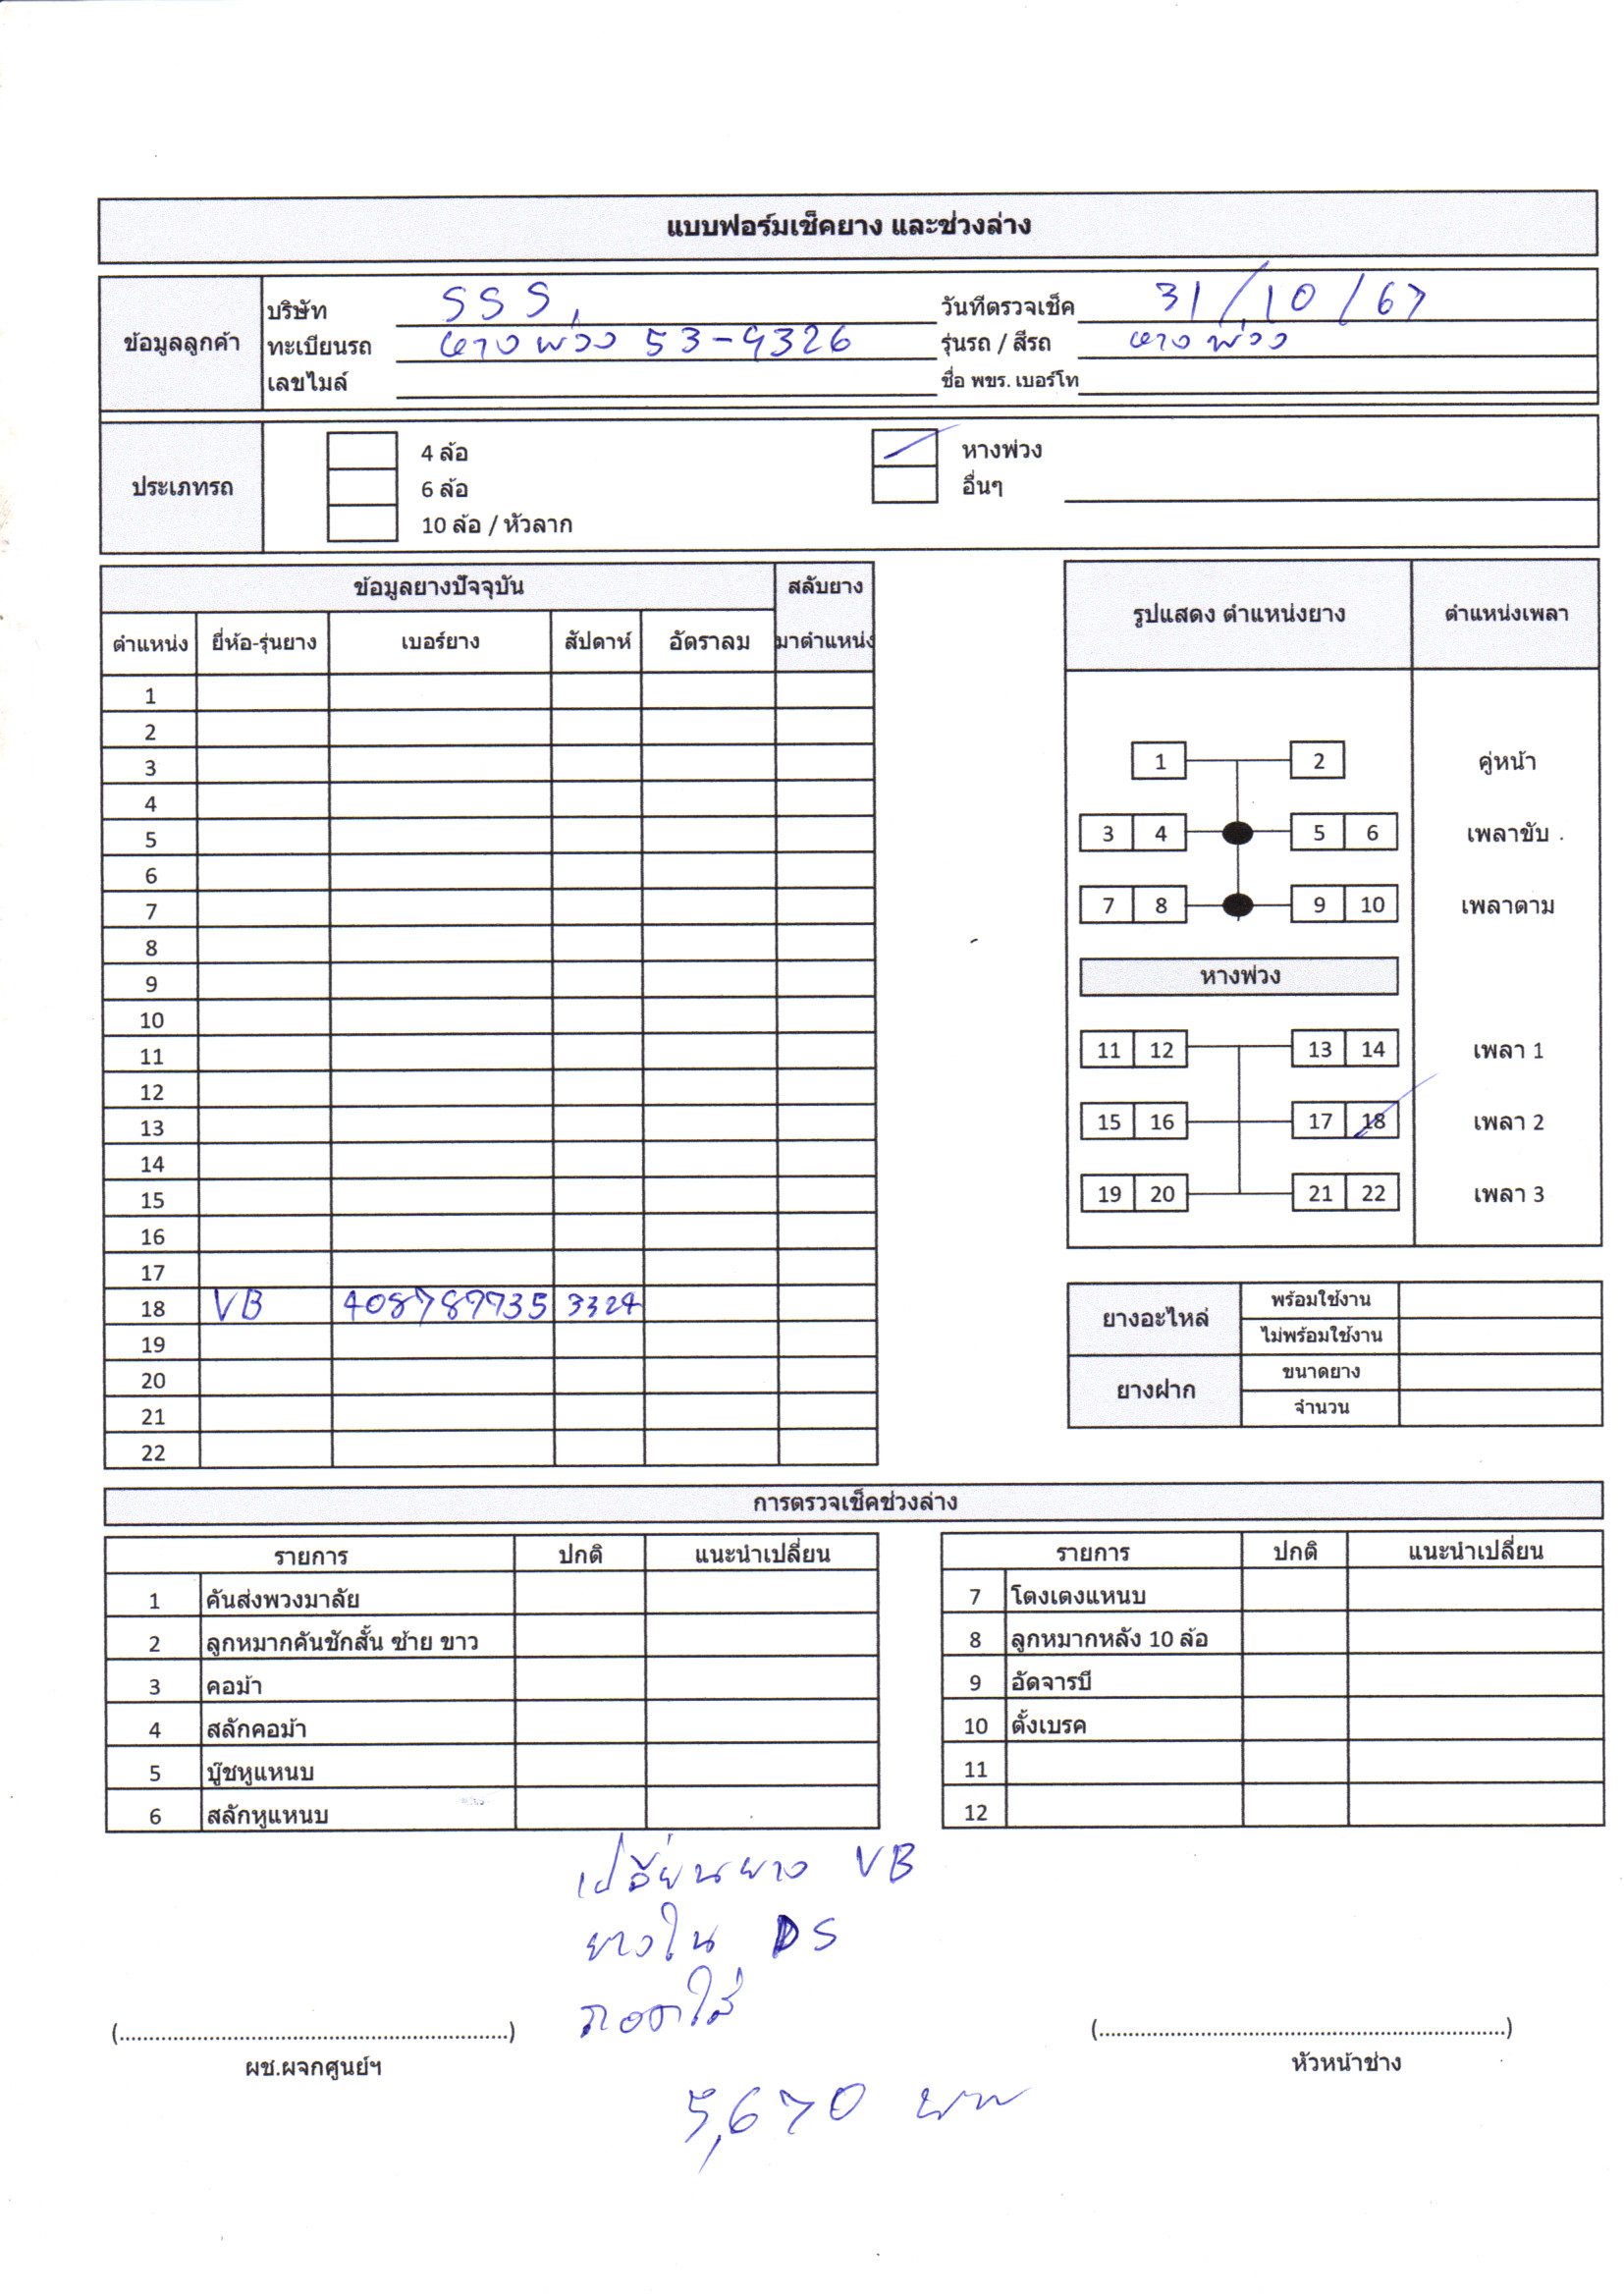 แบบฟอร์มเช็คยาง และช่วงล่าง
ข้อมูลลูกค้า
บริษัท SSS, วันที่ตรวจเช็ค 31/10/67
ทะเบียนรถ หางพ่วง 53-9326 รุ่นรถ / สีรถ หางพ่วง
เลขไมล์ ชื่อ พขร. เบอร์โท
ประเภทรถ
4 ล้อ หางพ่วง
6 ล้อ อื่นๆ
10 ล้อ / หัวลาก
ข้อมูลยางปัจจุบัน สลับยาง
ตำแหน่ง ยี่ห้อ-รุ่นยาง เบอร์ยาง สัปดาห์ อัตราลม มาตำแหน่ง
1
2
3
4
5
6
7
8
9
10
11
12
13
14
15
16
17
18 VB 408787735 3324
19
20
21
22
รูปแสดง ตำแหน่งยาง ตำแหน่งเพลา
1 2 คู่หน้า
3 4 5 6 เพลาขับ
7 8 9 10 เพลาตาม
หางพ่วง
11 12 13 14 เพลา 1
15 16 17 18 เพลา 2
19 20 21 22 เพลา 3
ยางอะไหล่ พร้อมใช้งาน
ไม่พร้อมใช้งาน
ยางฝาก ขนาดยาง
จำนวน
การตรวจเช็คช่วงล่าง
รายการ ปกติ แนะนำเปลี่ยน
1 คันส่งพวงมาลัย
2 ลูกหมากคันชักสั้น ซ้าย ขาว
3 คอม้า
4 สลักคอม้า
5 บู๊ชหูแหนบ
6 สลักหูแหนบ
รายการ ปกติ แนะนำเปลี่ยน
7 โตงเตงแหนบ
8 ลูกหมากหลัง 10 ล้อ
9 อัดจารบี
10 ตั้งเบรค
11
12
เปลี่ยนยาง VB
ยางใน DS
ถอดใส่
(..................................................................) (......................................................................)
ผช.ผจกศูนย์ฯ หัวหน้าช่าง
5,670 บาท